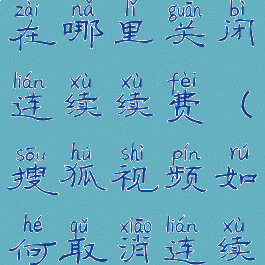 zài nǎ lǐ guān bì
在哪里关闭
lián xù xù fèi
连续续费（
sōu hú shì pín rú
搜狐视频如
hé qǔ xiāo lián xù
何取消连续